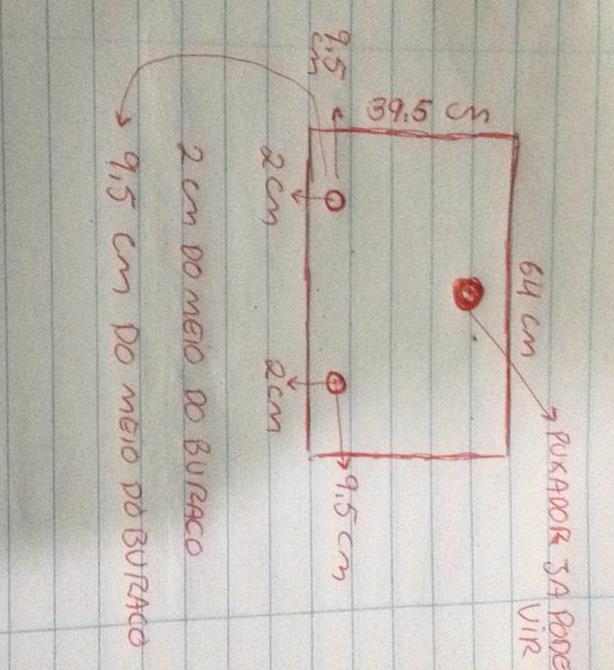 PUXADOR JÁ PODE
VIR
64 cm
39.5 cm
9,5
cm
9.5 cm
2cm
2cm
2 cm DO MEIO DO BURACO
9,5 cm DO MEIO DO BURACO